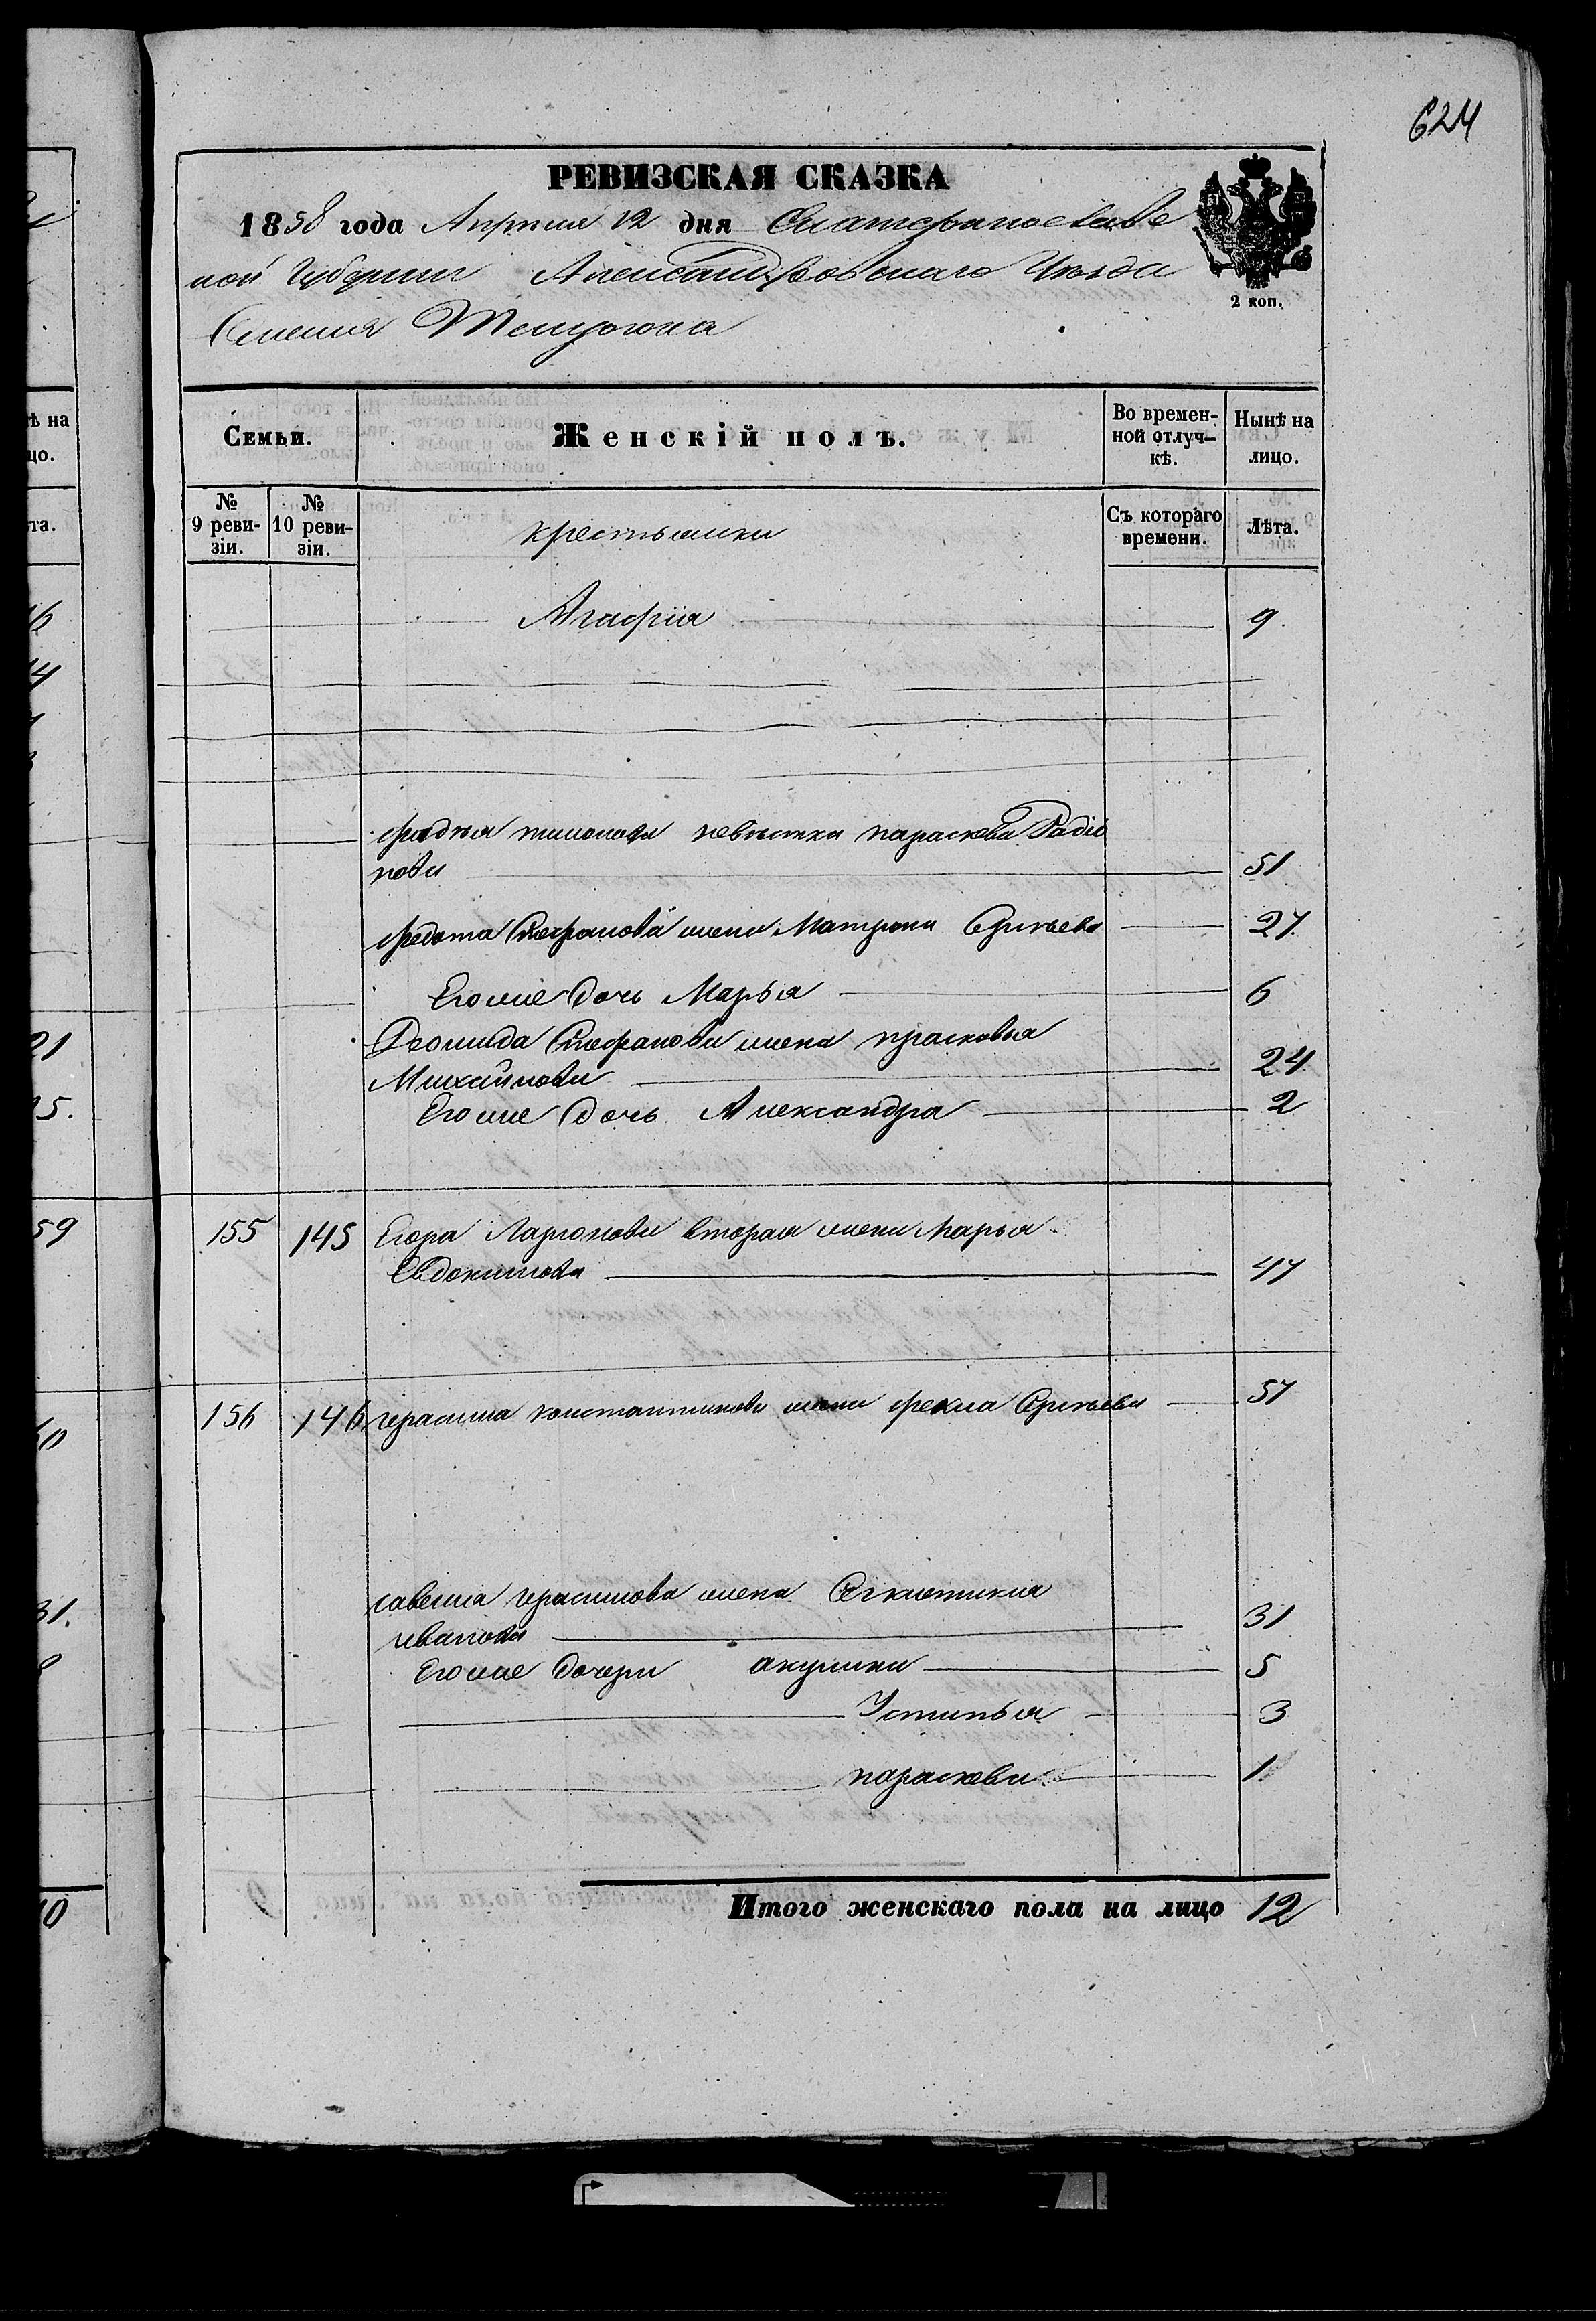 624
РЕВИЗСКАЯ СКАЗКА
1858 года Апреля 12 дня Екатеринославс
кой Губернии Александровскаго Уезда
Селения
2 коп.
Семьи.
Женскій полъ.
Во времен-
ной отлуч-
кѣ.
Нынѣ на
лицо.
№
9 реви-
зіи.
№
10 реви-
зіи.
крестьянки
Съ котораго
времени.
Лѣта.
Агафiя 9
невѣстка параскева Радiо
нова 51
Федота Стефанова жена Матрона Сергѣева 27
Егоже дочь Марья 6
Леонида Стефанова жена прасковья
Михайлова 24
Егоже дочь Александра 2
155 145 Егора Ларионова вторая жена Марья
Евдокимова 47
156 146 герасима константинова жена фекла Сергѣева 57
савелия герасимова жена
иванова 31
Егоже дочери акулина 5
Устинья 3
параскева 1
Итого женскаго пола на лицо 12
ѣ на
цо.
та.
16
21
15.
59
31.
10